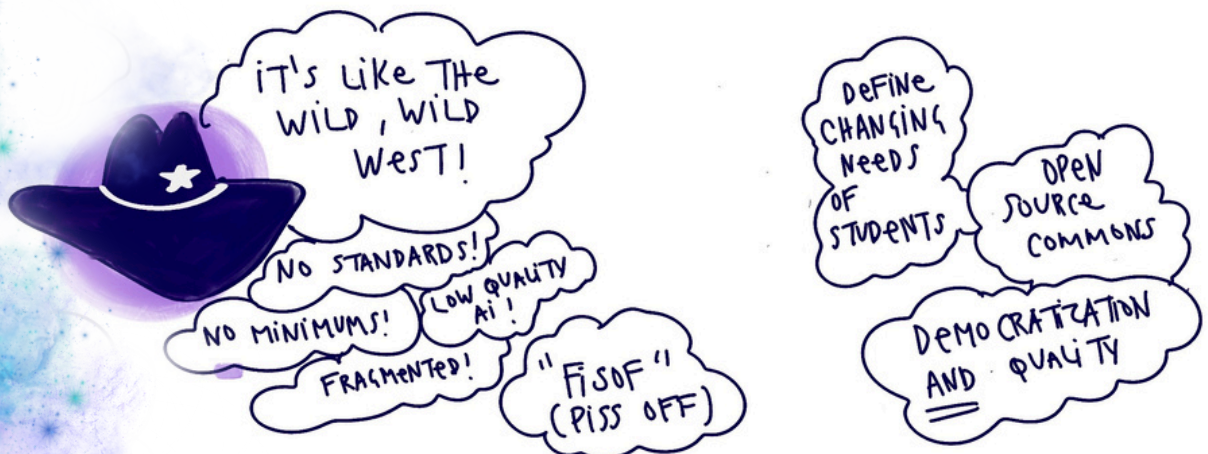 iT's LiKe THe
WiLD, WiLD
WesT!
NO STANDARDS!
LOW QUALiTY
Ai!
NO MiNiMUMS!
FRAGMeNTeD!
"FiSOF"
(PiSS OFF)
DeFiNe
CHANGiNG
NeeDS
OF
STUDeNTS
OPeN
SOURCe
COMMONS
DeMOCRATiZATiON
AND QUALiTY